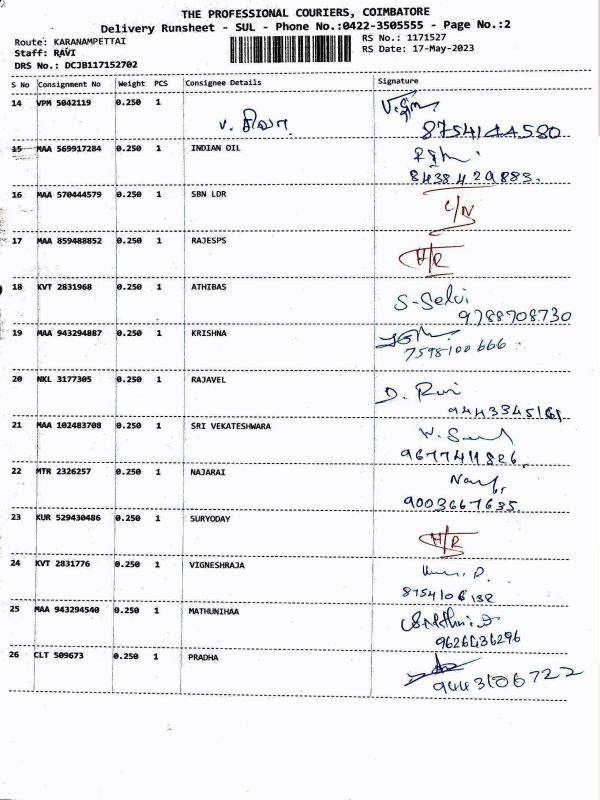 THE PROFESSIONAL COURIERS, COIMBATORE
Delivery Runsheet - SUL - Phone No.:0422-3505555 - Page No.:2
Route: KARANAMPETTAI RS No.: 1171527
Staff: RAVI RS Date: 17-May-2023
DRS No.: DCJB117152702
S No Consignment No Weight PCS Consignee Details Signature
14 VPM 5042119 0.250 1
V. சிவா
8754144580
15 MAA 569917284 0.250 1 INDIAN OIL
8438429883.
16 MAA 570444579 0.250 1 SBN LDR
C/N
17 MAA 859488852 0.250 1 RAJESPS
H/R
18 KVT 2831968 0.250 1 ATHIBAS
S-Selvi
9788708730
19 MAA 943294887 0.250 1 KRISHNA
7598100666.
20 NKL 3177305 0.250 1 RAJAVEL
D. Ravi
9443345161
21 MAA 102483708 0.250 1 SRI VEKATESHWARA
9677411826.
22 MTR 2326257 0.250 1 NAJARAI
9003667635.
23 KUR 529430486 0.250 1 SURYODAY
H/R
24 KVT 2831776 0.250 1 VIGNESHRAJA
8754106132
25 MAA 943294540 0.250 1 MATHUNIHAA
9626436296
26 CLT 509673 0.250 1 PRADHA
9443106722